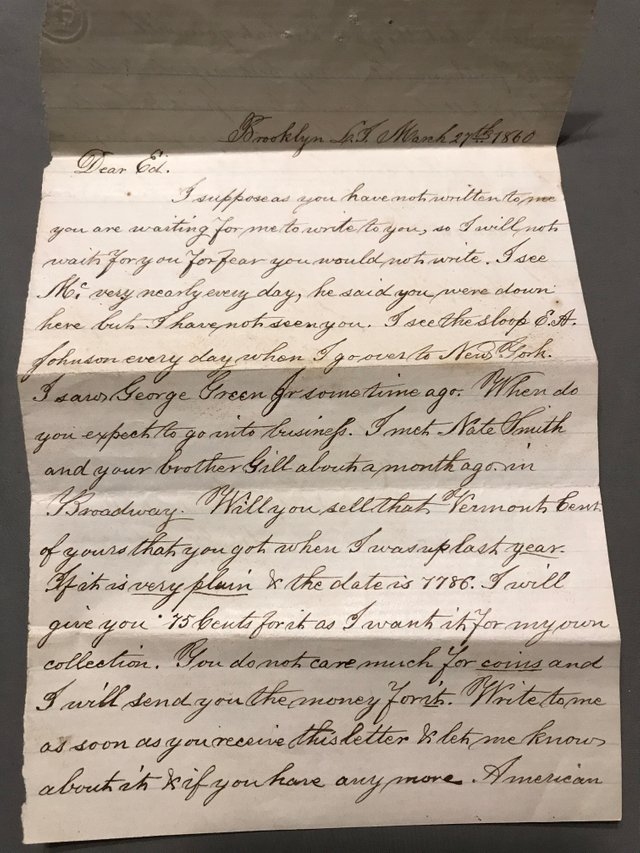 Brooklyn L.I. March 27th 1860
Dear Ed.
I suppose as you have not written to me
you are waiting for me to write to you, so I will not
wait for you for fear you would not write. I see
Mc. very nearly every day, he said you were down
here but I have not seen you. I see the sloop E.A.
Johnson every day when I go over to New York.
I saw George Green Jr some time ago. When do
you expect to go into business. I met Nate Smith
and your brother Gill about a month ago in
Broadway. Will you sell that Vermont Cent
of yours that you got when I was up last year.
If it is very plain & the date is 1786. I will
give you 75 Cents for it as I want it for my own
collection. You do not care much for coins and
I will send you the money for it. Write to me
as soon as you receive this letter & let me know
about it & if you have any more American